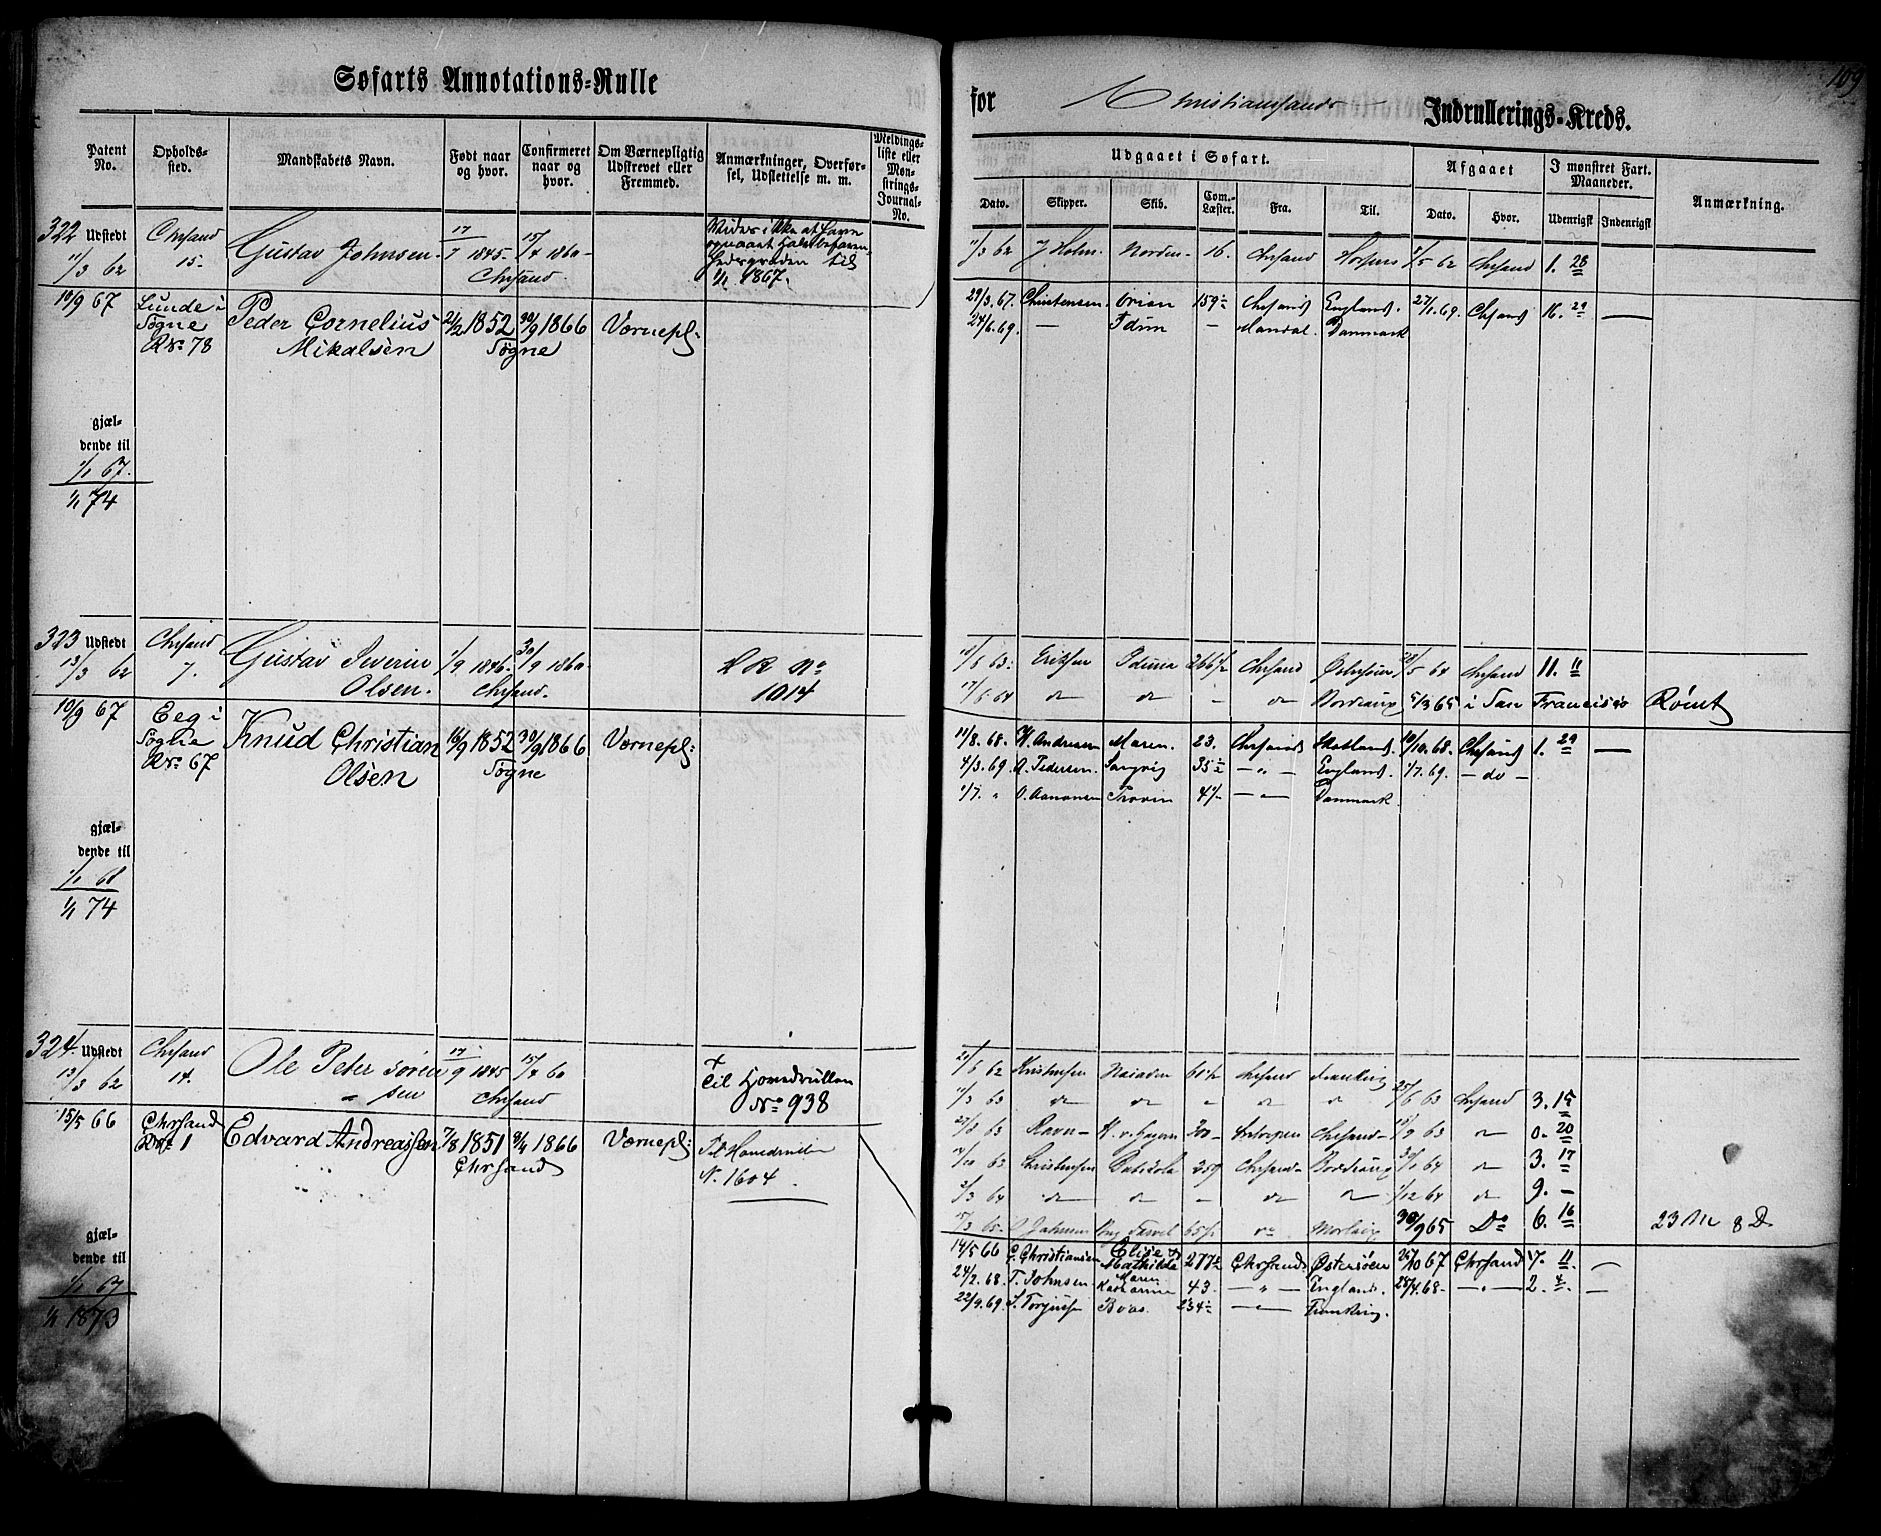 Søfarts Annotations-Rulle
for Christianssands Indrullerings-Kreds.
109
Patent No.
Opholds-sted.
Mandskabets Navn.
Født naar og hvor.
Confirmeret naar og hvor.
Om Værnepligtig Udskrevet eller Fremmed.
Anmærkninger, Overfør-sel, Udslettelse m. m.
Meldings-liste eller Mønstrings-Journal-No.
Udgaaet i Søfart.
Afgaaet
I mønstret Fart. Maaneder.
Anmærkning.
Dato. Skipper. Skib. Com.-Læster. Fra. Til. Dato. Hvor. Udenrigsk Indenrigsk
322 Udstedt 11/3 62
Chrsand 15-
Gustav Johnsen.
17/7 1845- 15/4 1860-
Chrsand
Vides ikke at have
opnaaet Halvbefaren-
hedsgraden til
1/1 1867.
11/3 62 J Holm. Norden- 16. Chrsand 5/5 62 Chrsand 1. 28
10/9 67
Lunde i
Søgne
R No 78
Peder Cornelius
Mikalsen
21/2 1852 30/9 1866
Søgne
Værnepl:
29/3. 67. Christensen. Orion 159 Chrsand England. 27/1. 69. Chrsand 16. 29 —
24/6. 69. — Idun — Mandal. Danmark
gjæl-
dende til
1/1 67.
1/1 74
323 Udstedt 13/3 62
Chrsand 7.
Gustav Severin
Olsen.
1/9 1846- 30/9 1860-
Chrsand.
H R No
1014
63: Eriksen Iduna 266 1/2 Chrsand 64 Chrsand 11. 11
17/6 64 do do - do Bordeaux 5/3 65 i San Francisco Rømt
10/9 67
Eeg i
Søgne
R No 67
Knud Christian
Olsen
16/9 1852 30/9 1866
Søgne
Værnepl:
11/8. 68. H. Andresen Maren. 23. Chrsand Skotland. 10/10. 68. Chrsand 1. 29 —
4/3. 69. A. Pedersen. Songvig 35 — " — England. 1/7. 69. — do —
1/7. " O. Aanonsen 41 — " — Danmark.
gjæl-
dende til
1/1 68
1/1 74
324. Udstedt 13/3 62
Chrsand 14.
Ole Peter Søren
sen
17/9 1845 15/4 60
Chrsand
+
Til Hovedrullen
No 938
62 Christensen Naiaden 60 1/2 Chrsand Frankrig
11/3 63 do do " do do 25/6 63 Chrsand 3. 15
63 Ravn- 200- Antverpen Chrsand- 63 do 0. 20
63 Christensen 259 Chrsand- Bordeaux 64 do 3. 17
2/3 64 do do - do do 1/12 64 do 9. -
65. 65 do 30/9 65 Do 6. 16 23 M 8 D.
15/5 66
Chrsand
R No 1
Edvard Andreassen
7/8 1851 8/4 1866
Chrsand
Værnepl:
Til Hovedrullen
N. 1604.
14/5 66 G. Christiansen Elise & Mathilde 277 Chrsand Østersøen 25/10 67 Chrsand 7. 11. —
24/2. 68. T. Johnsen Karen Kathrine 43. — " — England. 28/4. 68. — " — 2. 4. —
22/9. 69. S. Torjusen Boas. 234 — " — Frankrig.
gjæl-
dende til
1/1 67
1/1 1873